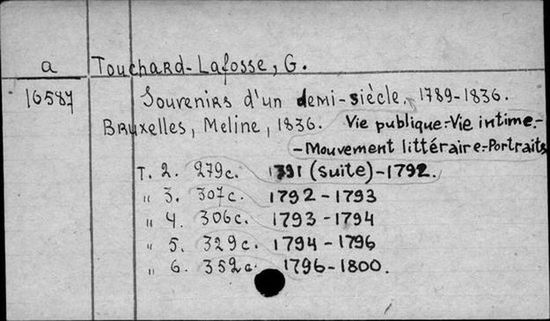 a Touchard-Lafosse, G.
16587 Souvenirs d'un demi-siècle. 1789-1836.
Bruxelles, Meline, 1836. Vie publique.-Vie intime.-
-Mouvement littéraire.-Portraits
T. 2. 279c. 1791 (suite)-1792.
" 3. 307c. 1792-1793
" 4. 306c. 1793-1794
" 5. 329c. 1794-1796
" 6. 352c. 1796-1800.